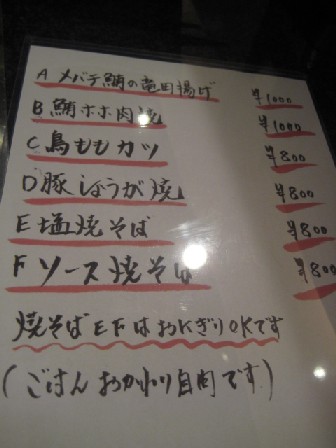 A メバチ鮪の竜田揚げ ¥1000
B 鮪ホホ肉焼 ¥1000
C 鳥ももカツ ¥800
D 豚しょうが焼 ¥800
E 塩焼そば ¥800
F ソース焼そば ¥800
焼そばEFはおにぎりOKです
(ごはんおかわり自由です)